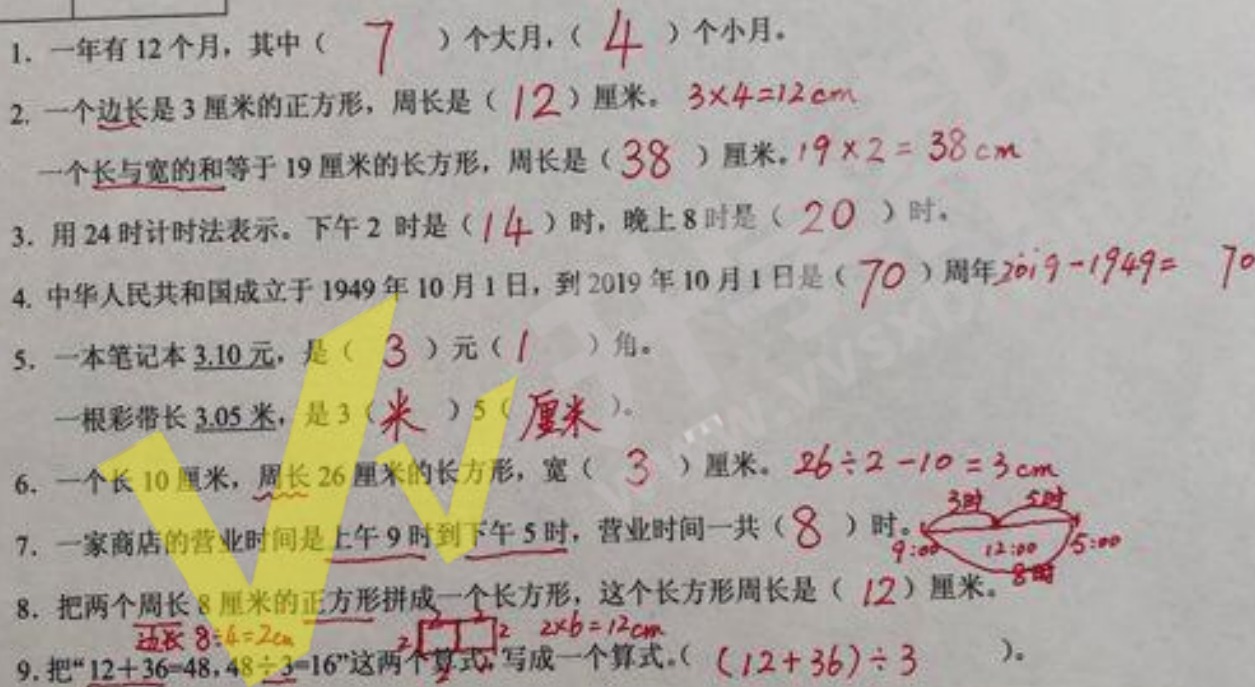 1. 一年有12个月，其中（ 7 ）个大月，（ 4 ）个小月。
2. 一个边长是3厘米的正方形，周长是（ 12 ）厘米。 3×4=12cm
一个长与宽的和等于19厘米的长方形，周长是（ 38 ）厘米。19×2=38cm
3. 用24时计时法表示。下午2 时是（ 14 ）时，晚上8时是（ 20 ）时。
4. 中华人民共和国成立于1949年10月1日，到2019年10月1日是（ 70 ）周年2019-1949= 70
5. 一本笔记本3.10元，是（ 3 ）元（ 1 ）角。
一根彩带长3.05米，是3（ 米 ）5（ 厘米 ）。
6. 一个长10厘米，周长26厘米的长方形，宽（ 3 ）厘米。 26÷2-10=3cm
3时 5时
7. 一家商店的营业时间是上午9时到下午5时，营业时间一共（ 8 ）时。
9:00 12:00 5:00
8时
8. 把两个周长8厘米的正方形拼成一个长方形，这个长方形周长是（ 12 ）厘米。
边长 8÷4=2cm 2 2 2 2 2 2 2×6=12cm
9. 把“12+36=48，48÷3=16”这两个算式，写成一个算式。（ (12+36)÷3 ）。